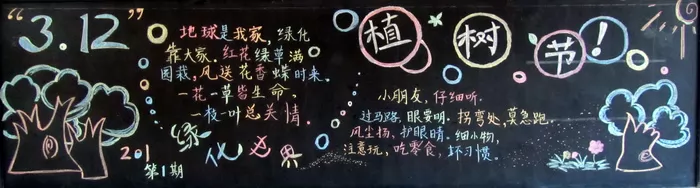 “3.12”
地球是我家，绿化
靠大家。红花绿草满
园栽，风送花香蝶时来。
一花一草皆生命，
一枝一叶总关情。
绿化世界
201
第1期
植树节！
小朋友，仔细听。
过马路，眼要明。拐弯处，莫急跑。
风尘扬，护眼睛。细小物，
注意玩，吃零食，坏习惯。